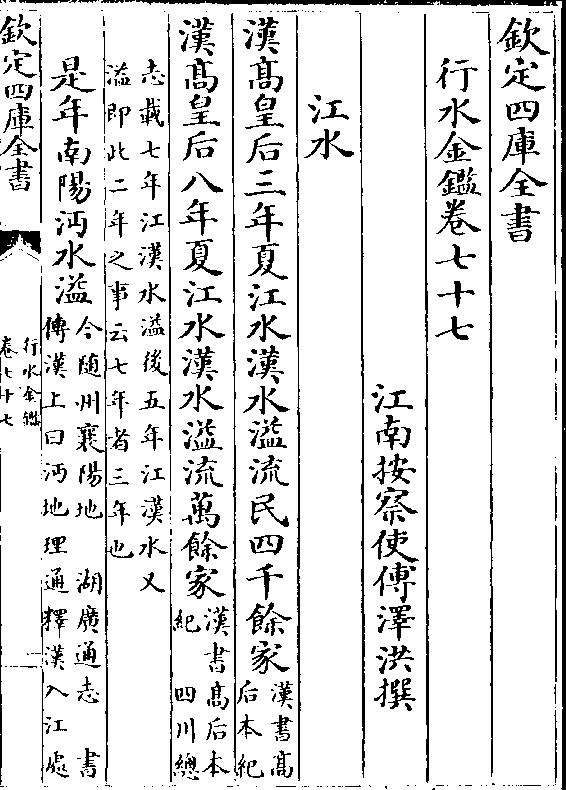 欽定四庫全書
行水金鑑卷七十七
江南按察使傅澤洪撰
江水
漢高皇后三年夏江水漢水溢流民四千餘家漢書高
后本紀
漢高皇后八年夏江水漢水溢流萬餘家漢書高后本
紀 四川總
志載七年江漢水溢後五年江漢水又
溢即此二年之事云七年者三年也
是年南陽沔水溢今隨州襄陽地 湖廣通志 書
傳漢上曰沔地理通釋漢入江處
欽定四庫全書
行水金鑑
卷七十七
一